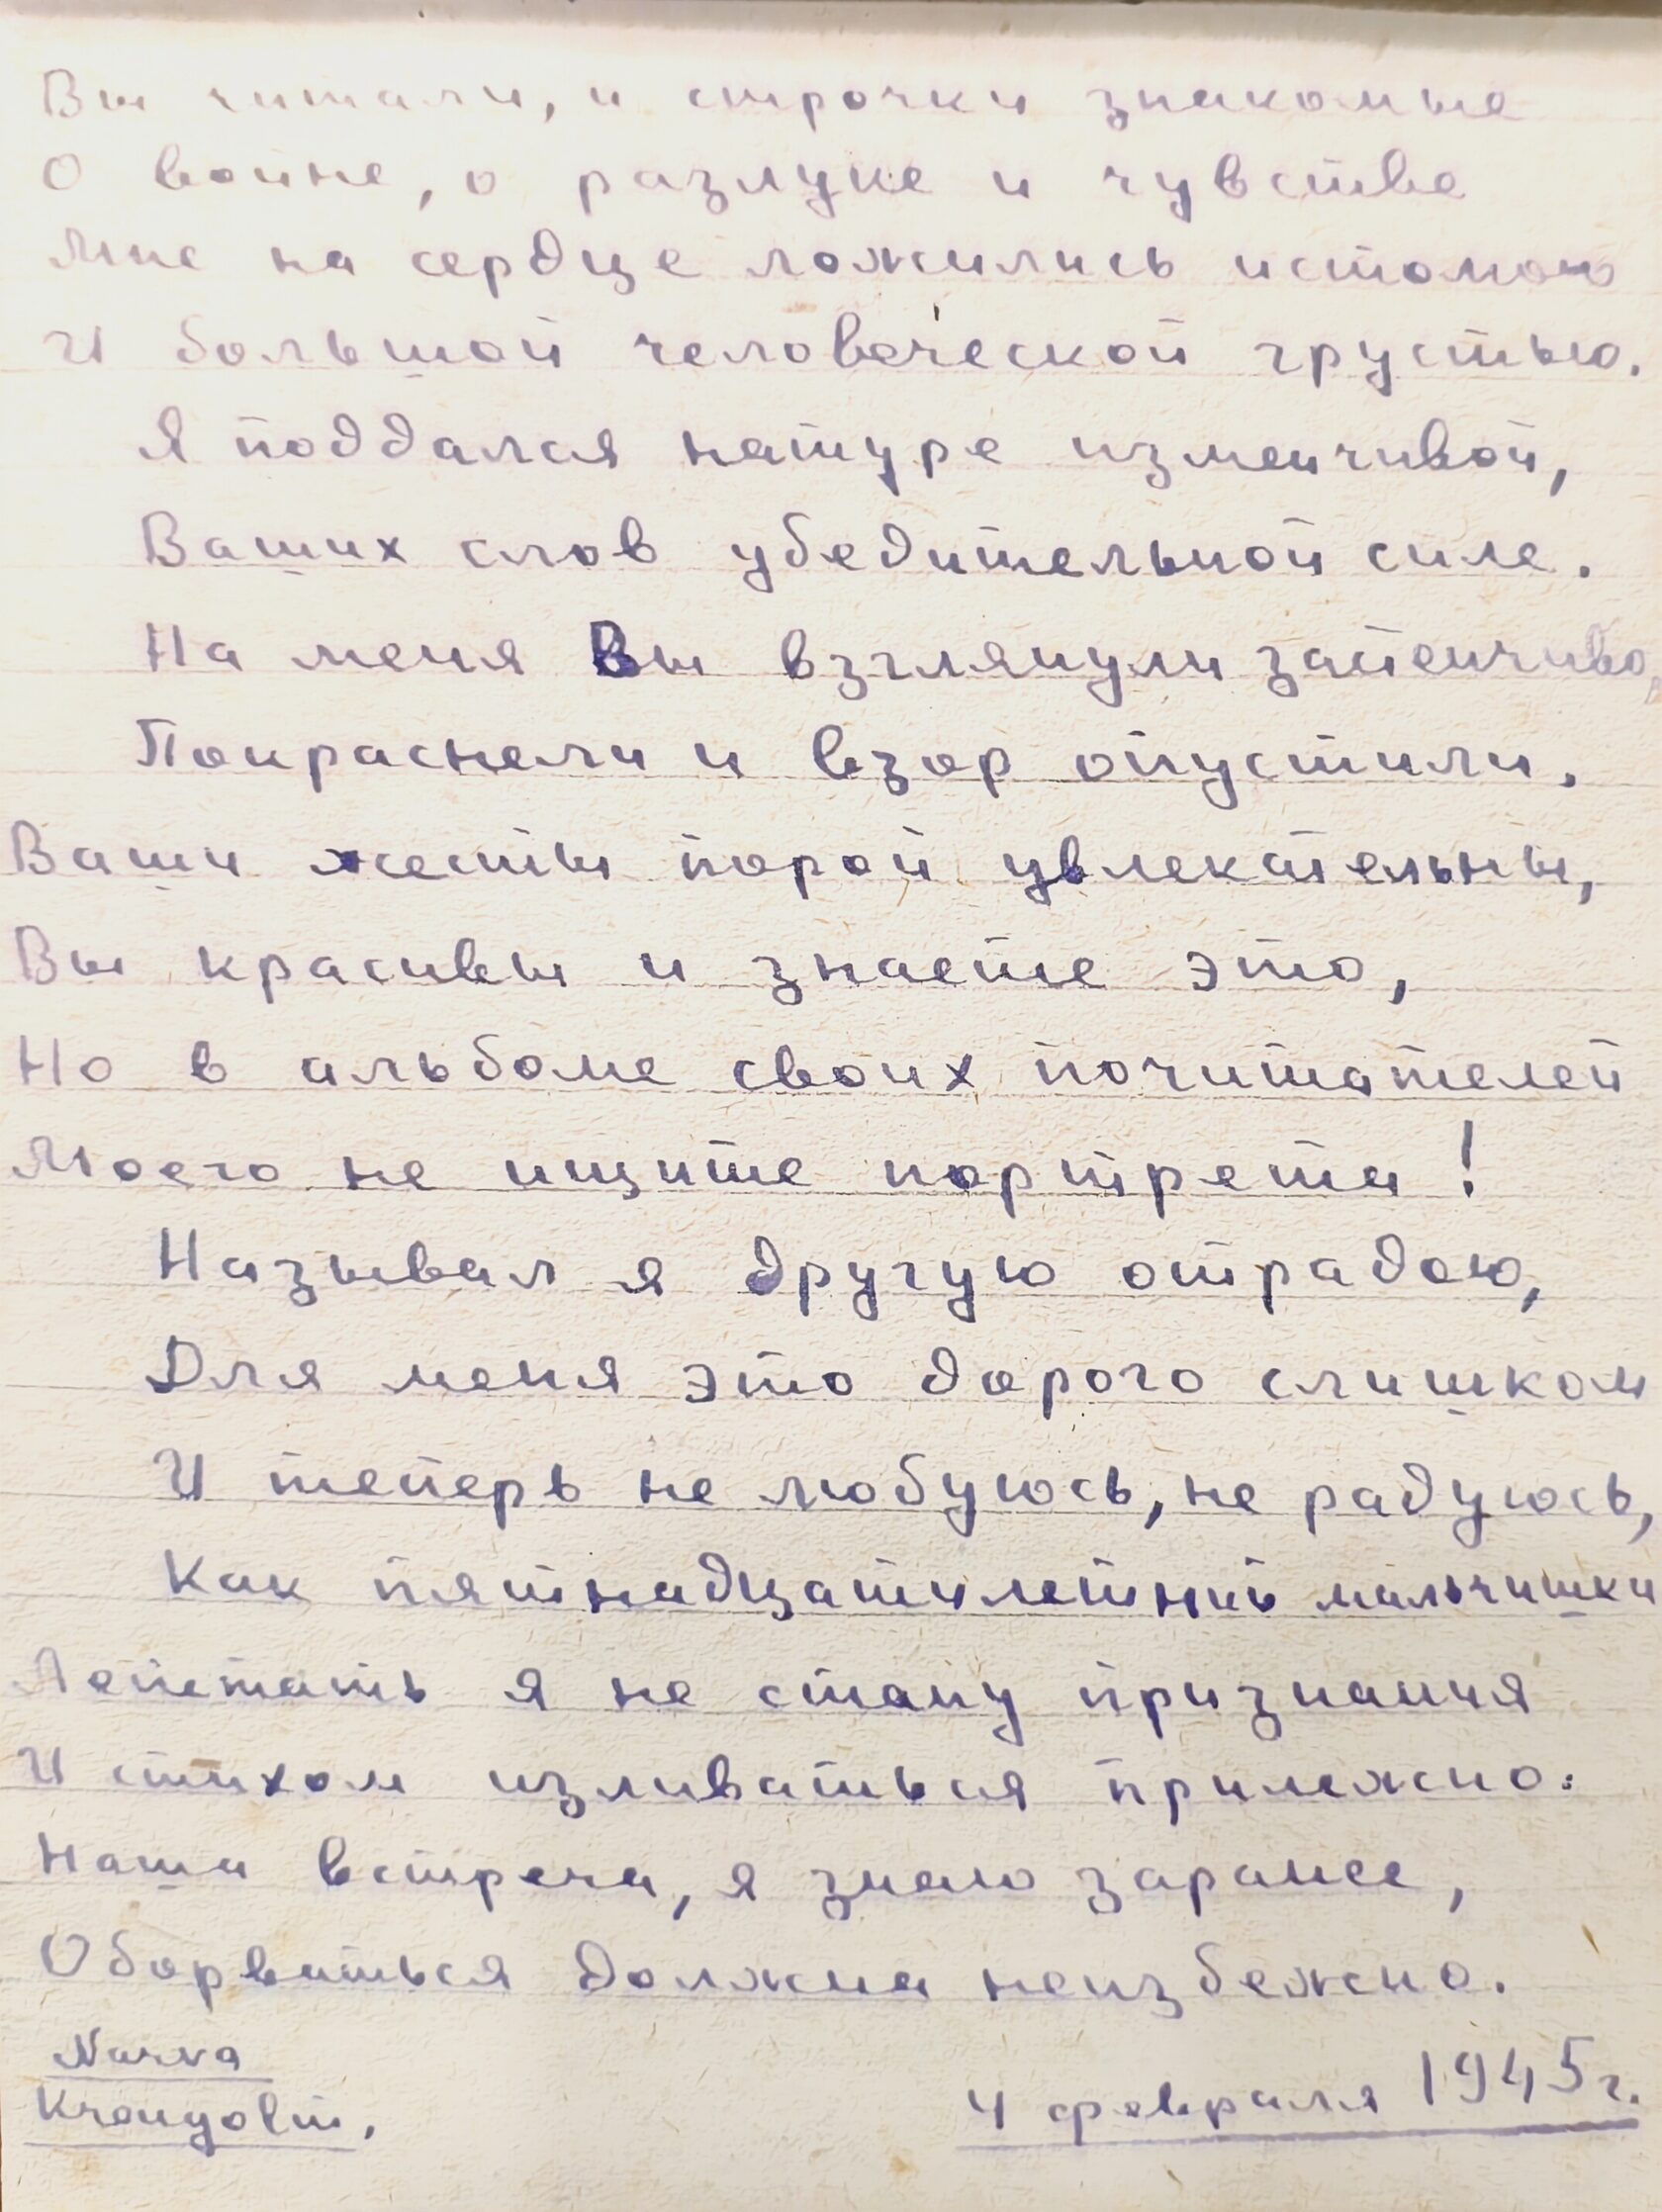 Вы читали, и строчки знакомые
О войне, о разлуке и чувстве
Мне на сердце ложились истомою
И большой человеческой грустью.
Я поддался натуре изменчивой,
Ваших слов убедительной силе.
На меня Вы взглянули застенчиво,
Покраснели и взор опустили.
Ваши жесты порой увлекательны,
Вы красивы и знаете это,
Но в альбоме своих почитателей
Моего не ищите портрета!
Называл я другую отрадою,
Для меня это дорого слишком
И теперь не любуюсь, не радуюсь,
Как пятнадцатилетний мальчишка
Лепетать я не стану признания
И стихом изливаться прилежно:
Наша встреча, я знаю заранее,
Оборваться должна неизбежно.
Narva
4 февраля 1945 г.